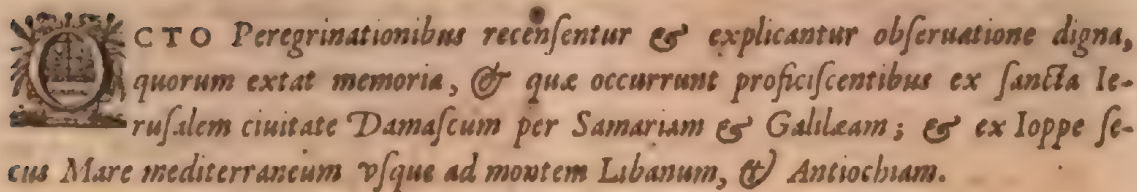 OCTO Peregrinationibus recenſentur & explicantur obſeruatione digna,
quorum extat memoria, & quæ occurrunt proficiſcentibus ex ſancta Ie-
ruſalem ciuitate Damaſcum per Samariam & Galilæam; & ex Ioppe ſe-
cus Mare mediterraneum vſque ad montem Libanum, & Antiochiam.